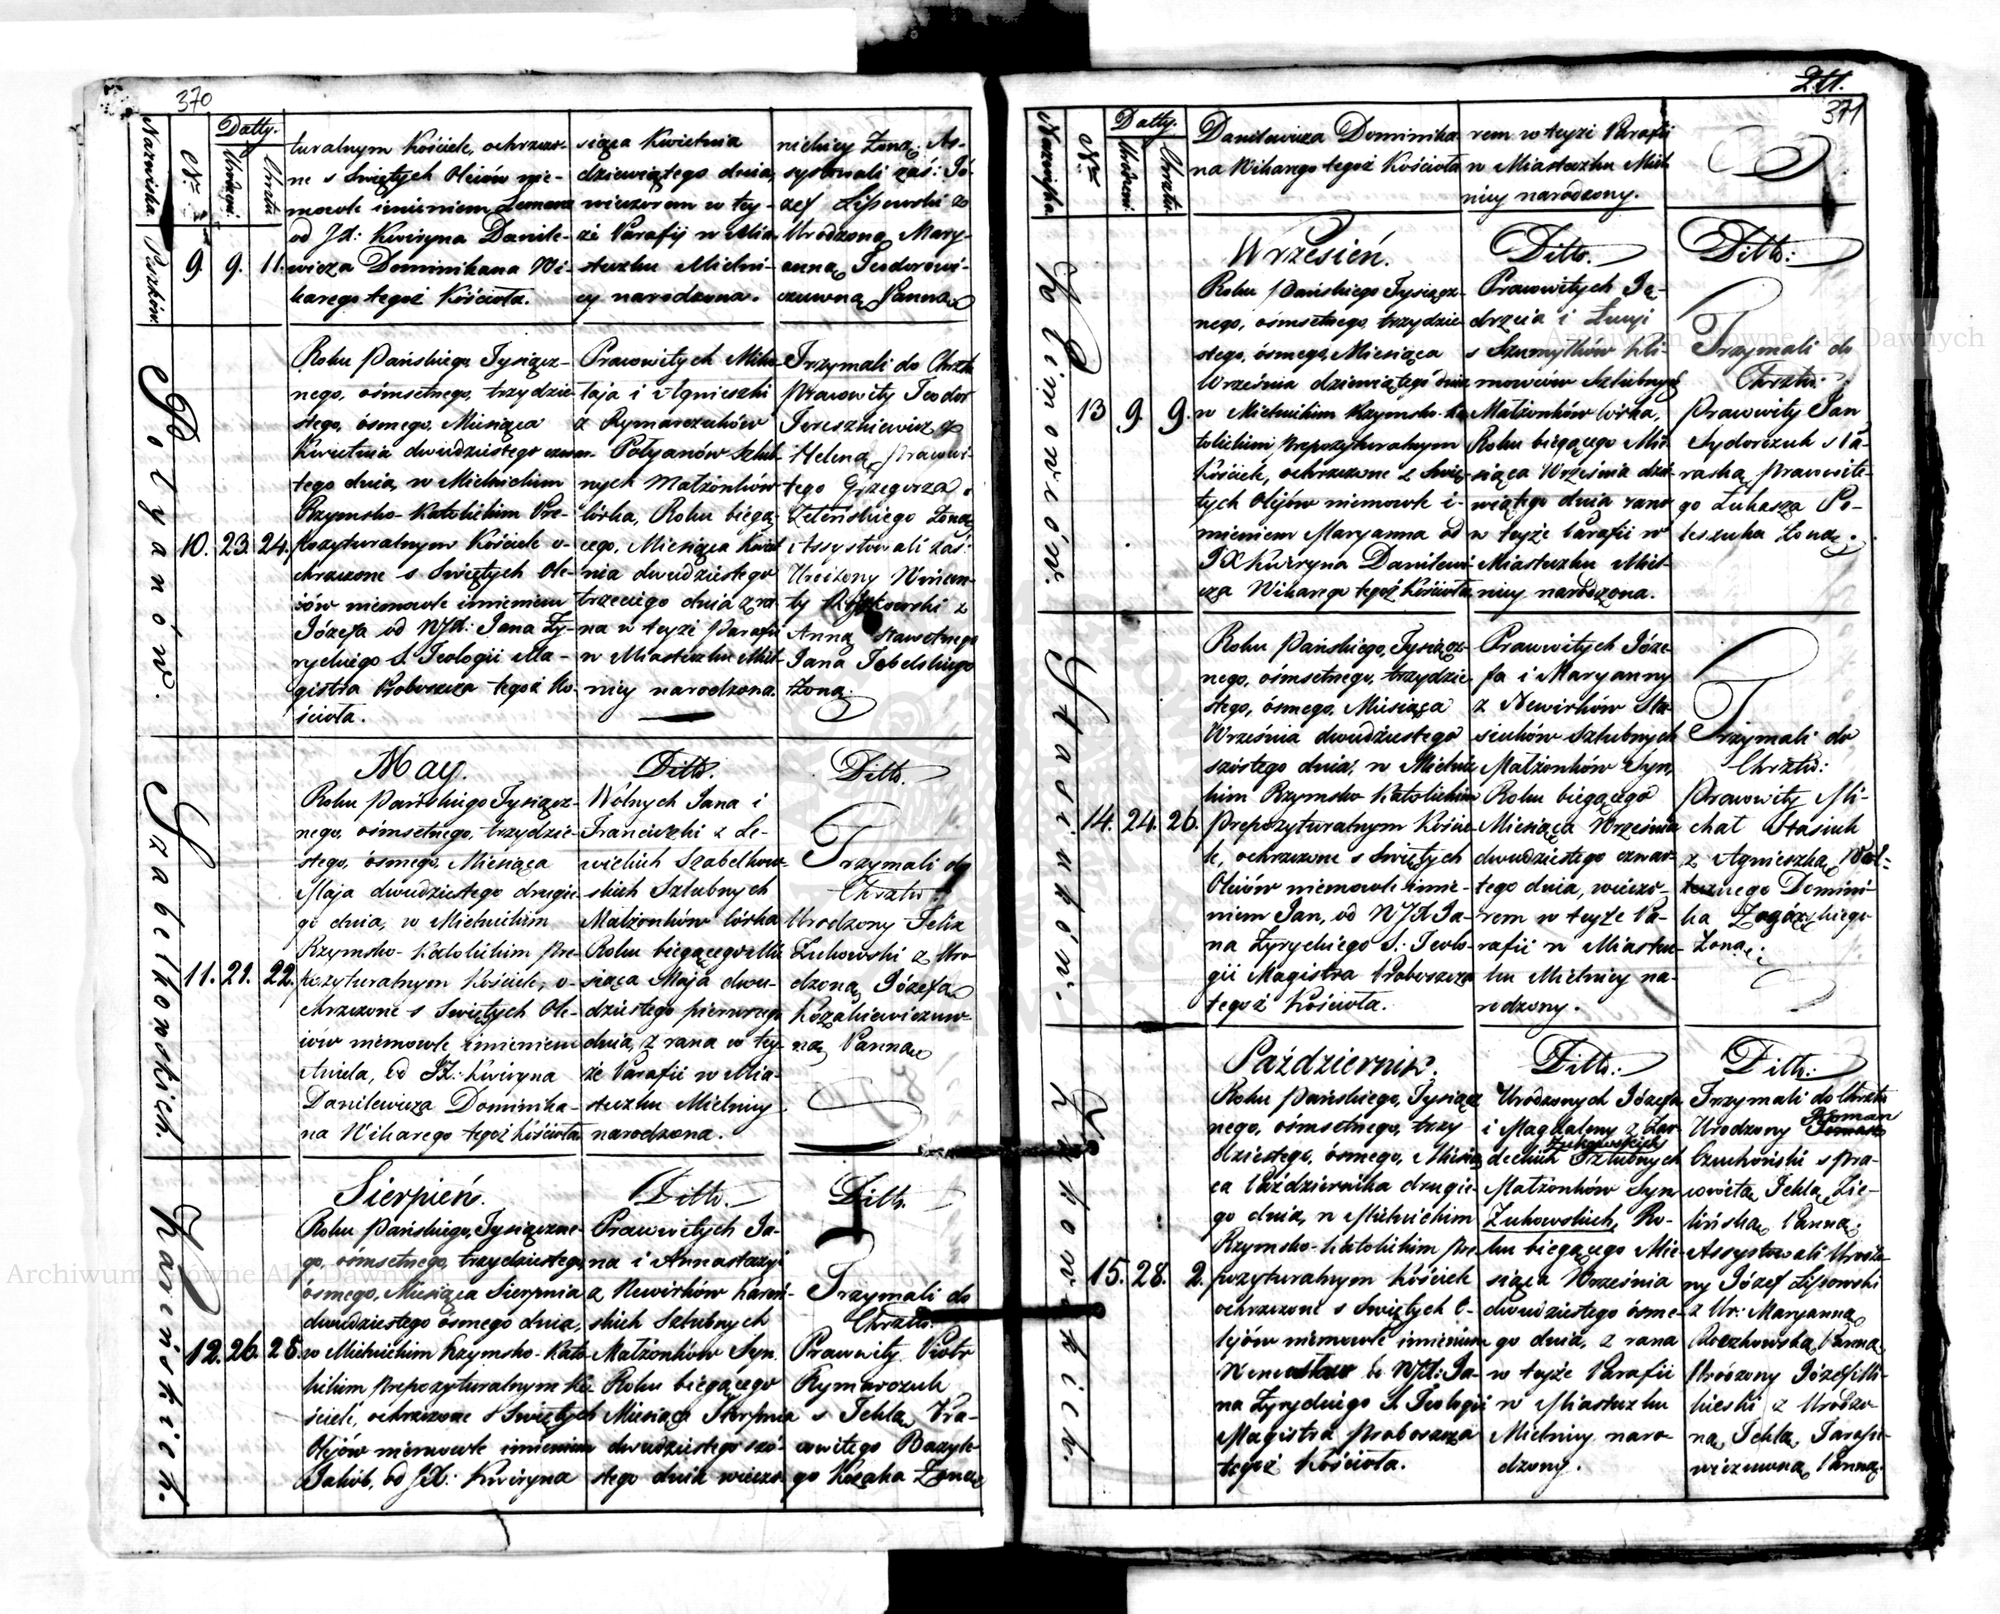 370
Nazwiska.
Nr
Datty.
Urodzeni
Chrztu
turalnym Kościele, ochrzczo-
ne s Swiętych Oleiów nie-
mowle imieniem
od JX: Kwiryna Danile-
wicza Dominikana Wi-
karego tegoż Kościoła.
siąca Kwietnia
dziewiątego dnia,
wieczorem w tey-
że Parafij w Mia-
steczku Mielni-
cy narodzona.
nickiey Żoną. As-
systowali zaś: Jó-
zef Lipowski z
Urodzoną Mary-
anną Teodorowi-
czuwną Panną
9. 9. 11.
Połyanów.
10. 23. 24.
Roku Pańskiego Tysiącz-
nego, ośmsetnego, trzydzie-
stego, ósmego, Miesiąca
Kwietnia dwudziestego czwar-
tego dnia, w Mielnickim
Rzymsko-Katolickim Pre-
pozyturalnym Kościele o-
chrzczone s Swiętych Ole-
iów niemowle imieniem
Józefa od WJX: Jana Ży-
ryckiego S. Teologii Ma-
gistra Proboszcza tegoż Ko-
ścioła.
Prawowitych Miko-
łaja i Agnieszki
z Rymarczuków
Połyanów Szlub-
nych Małżonków
Córka, Roku biegą-
cego, Miesiąca Kwiet-
nia dwudziestego
trzeciego dnia z ra-
na w teyże Parafii
w Miasteczku Miel-
nicy narodzona.
Trzymali do Chrztu
Prawowity Teodor
Tereszkiewicz z
Heleną, Prawowi-
tego Grzegorza
Zeleńskiego Żoną,
Assystowali zaś:
Urodzony Wincen-
ty z
Anną Sławetnego
Jana Tobelskiego
Żoną.
Szabelkowskich.
11. 21. 22.
May.
Roku Pańskiego Tysiącz-
nego, ośmsetnego, trzydzie-
stego, ósmego, Miesiąca
Maja dwudziestego drugie-
go dnia, w Mielnickim
Rzymsko-Katolickim Pre-
pozyturalnym Kościele, o-
chrzczone s Swiętych Ole-
iów niemowle imieniem
Aniela, od JX: Kwiryna
Danilewicza Dominika-
na Wikarego tegoż Kościoła
Ditto.
Wólnych Jana i
Franciszki z Le-
wickich Szabelkow-
skich Szlubnych
Małżonków Córka
Roku biegącego Mie-
siąca Maja dwu-
dziestego pierwszego
dnia, z rana w tey-
że Parafii w Mia-
steczku Mielnicy
narodzona.
Ditto.
Trzymali do
Chrztu:
Urodzony Felix
Żukowski z Uro-
dzoną Józefą
Kozakiewiczuw-
ną Panną
Karenskich.
12. 26. 28.
Sierpień.
Roku Pańskiego, Tysiączne-
go, ośmsetnego, trzydziestego,
ósmego, Miesiąca Sierpnia
dwudziestego ósmego dnia,
w Mielnickim Rzymsko-Kato-
lickim Prepozyturalnym Ko-
ściele, ochrzczone s Swiętych
Olejów niemowle imieniem
Jakób, od JX: Kwiryna
Ditto.
Prawowitych Ja-
na i Annastazyi
z Newirków Kareń-
skich Szlubnych
Małżonków Syn,
Roku biegącego
Miesiąca Sierpnia
dwudziestego szó-
stego dnia wieczo-
Ditto.
Trzymali do
Chrztu:
Prawowity Piotr
Rymarczuk
s Teklą Pra-
wowitego Bazyle-
go Kozaka Żoną
211.
371
Nazwiska.
Nr
Datty.
Urodzeni.
Chrztu.
Danilewicza Dominika-
na Wikarego tegoż Kościoła
rem w teyże Parafii
w Miasteczku Miel-
nicy narodzony.
Klimowców.
13 9. 9.
Wrzesień.
Roku Pańskiego Tysiącz-
nego, ośmsetnego, trzydzie-
stego, ósmego, Miesiąca
Września dziewiątego dnia
w Mielnickim Rzymsko-Ka-
tolickim Prepozyturalnym
Kościele, ochrzczone z Swię-
tych Olejów niemowle i-
mieniem Maryanna od
JX Kwiryna Danilewi-
cza Wikarego tegoż Kościoła
Ditto.
Prawowitych Ję-
drzeia i Łucyi
s Szumytków Kli-
mowców Szlubnych
Małżonków Córka,
Roku biegącego Mie-
siąca Września dzie-
wiątego dnia rano
w teyże Parafii w
Miasteczku Miel-
nicy narodzona.
Ditto:
Trzymali do
Chrztu:
Prawowity Jan
Sydorczuk s Pa-
raską Prawowite-
go Łukasza Po-
leszuka Żoną.
Stasiuków.
14. 24. 26.
Roku Pańskiego, Tysiącz-
nego, ośmsetnego, trzydzie-
stego, ósmego, Miesiąca
Września dwudziestego
szóstego dnia, w Mielnic-
kim Rzymsko Katolickim
Prepozyturalnym Koście-
le, ochrzczone s Swiętych
Oleiów niemowle imie-
niem Jan, od WJX Ja-
na Żyryckiego S. Teolo-
gii Magistra Proboszcza
tegoż Kościoła.
Prawowitych Józe-
fa i Maryanny
z Newirków Sta-
siuków Szlubnych
Małżonków Syn,
Roku biegącego
Miesiąca Września
dwudziestego czwar-
tego dnia, wieczo-
rem w teyże Pa-
rafii w Miastecz-
ku Mielnicy na-
rodzony.
Trzymali do
Chrztu:
Prawowity Mi-
chał Stasiuk
z Agnieszką
Domini-
ka Zagórskiego
Żoną.
Żukowskich.
15. 28. 2.
Październik.
Roku Pańskiego, Tysiącz-
nego, ośmsetnego, trzy-
dziestego, ósmego, Miesią-
ca Października drugie-
go dnia, w Mielnickim
Rzymsko-Katolickim Pre-
pozyturalnym Kościele
ochrzczone s Swiętych O-
lejów niemowle imieniem
od WJX: Ja-
na Żyryckiego S. Teologii
Magistra Proboszcza
tegoż Kościoła.
Ditto:
Urodzonych Józefa
i Magdaleny z Gar-
Żukowskich
deckich Szlubnych
Małżonków Syn
Żukowskich, Ro-
ku biegącego Mie-
siąca Września
dwudziestego ósme-
go dnia, z rana
w teyże Parafii
w Miasteczku
Mielnicy naro-
dzony.
Ditto:
Trzymali do Chrztu
Roman
Urodzony
Czuchoński s Pra-
wowitą Teklą Zie-
lińską Panną.
Assystowali Urodzo-
ny Józef Lipowski
z Ur: Maryanną
Panną,
Urodzony Józef Mi-
z Urodzo-
ną Teklą
wiczuwną Panną.
Archiwum Główne Akt Dawnych
Archiwum Główne Akt Dawnych